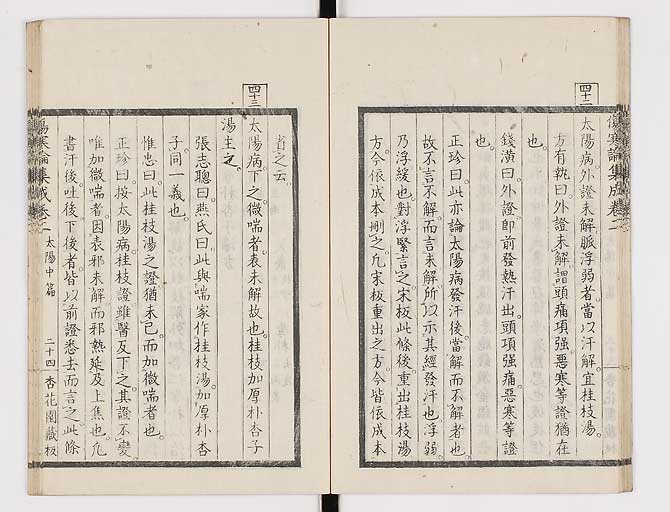 四十二
太陽病外證未解脈浮弱者當以汗解宜桂枝湯
方有執曰外證未解謂頭痛項强惡寒等證猶在
也
錢潢曰外證即前發熱汗出頭項强痛惡寒等證
也
正珍曰此亦論太陽病發汗後當解而不解者也
故不言不解而言未解所以示其經發汗也浮弱
乃浮緩也對浮緊言之宋板此條後重出桂枝湯
方今依成本刪之凡宋板重出之方今皆依成本
省之云
四十三
太陽病下之微喘者表未解故也桂枝加厚朴杏子
湯主之
張志聰曰燕氏曰此與喘家作桂枝湯加厚朴杏
子同一義也
惟忠曰此桂枝湯之證猶未已而加微喘者也
正珍曰按太陽病桂枝證雖醫反下之其證不變
唯加微喘者因表邪未解而邪熱延及上焦也凡
書汗後吐後下後者皆以前證悉去而言之此條
傷寒論集成卷二 太陽中篇 二十四 杏花園藏板